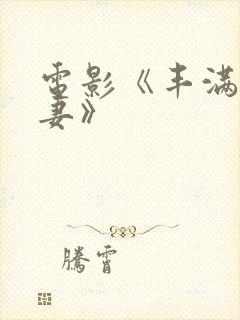 電影《丰满
妻》
騰霄